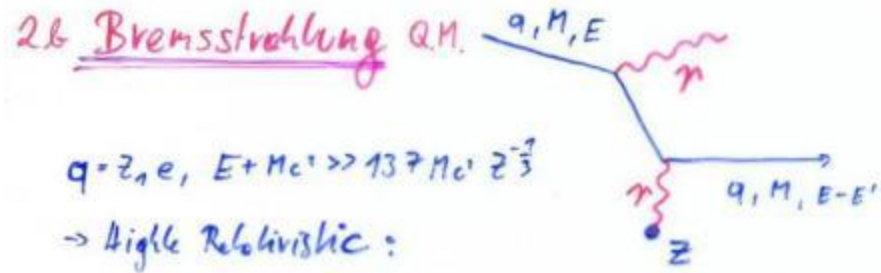 2b Bremsstrahlung Q.M.
q, M, E
γ
q = Z₁e, E + Mc² >> 137 Mc² Z^{-1/3}
γ
q, M, E-E'
→ Highly Relativistic:
Z